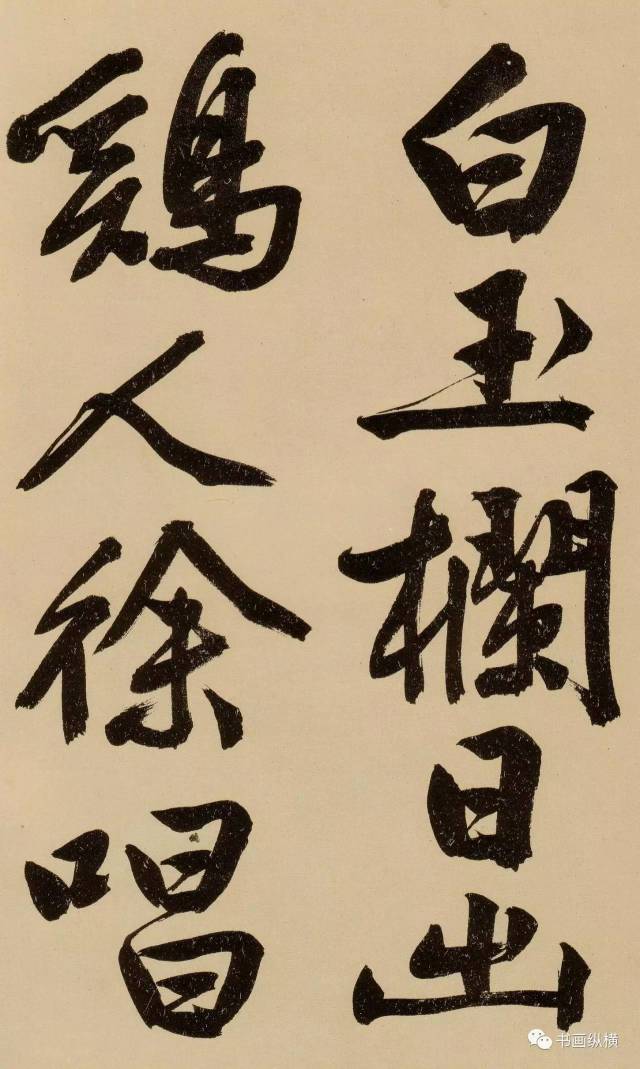 白玉欄日出
鷄人徐唱
书画纵横